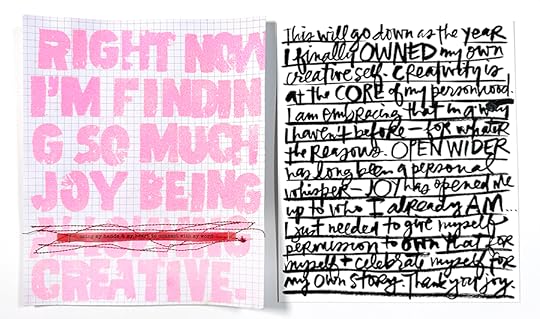 RIGHT NOW
I'M FINDIN
G SO MUCH
JOY BEING
CREATIVE.
This will go down as the year
I finally OWNED my own
creative self. Creativity is
at the CORE of my personhood.
I am embracing that in a way
I haven't before – for whatever
the reasons. OPEN WIDER
has long been a personal
whisper – JOY has opened me
up to who I already AM...
I just needed to give myself
permission to OWN that for
myself + celebrate myself for
my own story. Thank you joy.